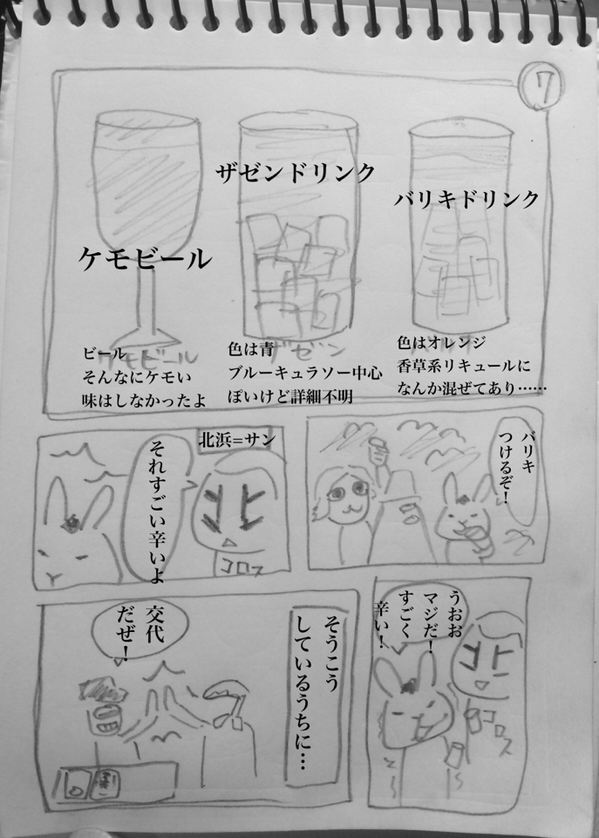 7
ケモビール
ザゼンドリンク
バリキドリンク
ケモビール
ビール
そんなにケモい
味はしなかったよ
ザゼン
色は青
ブルーキュラソー中心
ぽいけど詳細不明
色はオレンジ
香草系リキュールに
なんか混ぜてあり……
バリキ
つけるぞ!
北浜=サン
それすごい辛いよ
コロス
うおお
マジだ!
すごく
辛い!
コロス
そうこう
しているうちに…
交代
だぜ!